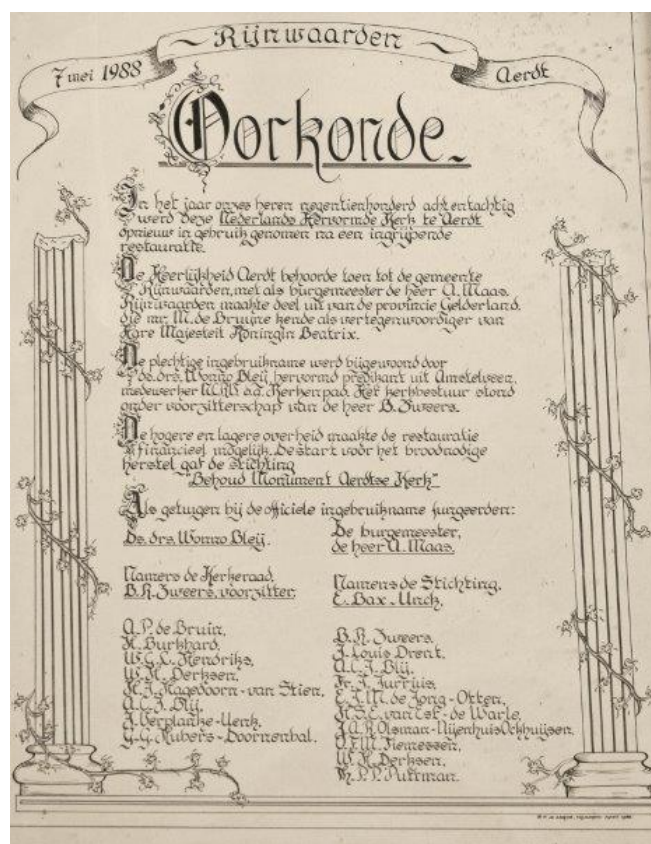 Rijnwaarden
7 mei 1988
Aerdt
Oorkonde
In het jaar onzes heren negentienhonderd acht en tachtig
werd deze Nederlands Hervormde Kerk te Aerdt
opnieuw in gebruik genomen na een ingrijpende
restauratie.
De Heerlijkheid Aerdt behoorde toen tot de gemeente
Rijnwaarden, met als burgemeester de heer A. Maas.
Rijnwaarden maakte deel uit van de provincie Gelderland,
die mr. M. de Bruijne kende als vertegenwoordiger van
Hare Majesteit Koningin Beatrix.
De plechtige ingebruikname werd bijgewoond door
ds. drs. Wonno Bleij hervormd predikant uit Amstelveen,
medewerker a.a. Kerkenpad. Het kerkbestuur stond
onder voorzitterschap van de heer B. Zweers.
De hogere en lagere overheid maakte de restauratie
financieel mogelijk. De start voor het broodnodige
herstel gaf de stichting
"Behoud Monument Aerdtse Kerk"
Als getuigen bij de officiele ingebruikname fungeerden:
Ds. drs. Wonno Bleij.
De burgemeester,
de heer A. Maas.
Namens de Kerkeraad,
B.H. Zweers, voorzitter
Namens de Stichting,
E. Bax-Unck,
A.P. de Bruin,
H. Burkhard,
W.G.C. Hendriks,
W.H. Derksen,
H.J. Hagedoorn-van Stien,
A.C.J. Blij,
J. Verplanke-Uenk,
G.G. Hubers-Doornenbal.
B.H. Zweers,
J. Louis Drent,
A.C.J. Blij,
Fr. J. Jurrius,
E.J.M. de Jong-Otten,
H.S.E. van Est-de Warle,
J.A.H. Olsman-Nijenhuis Ockhuijsen,
O.F.M. Tiemessen,
W.H. Derksen,
Th. P.P. Puttman.